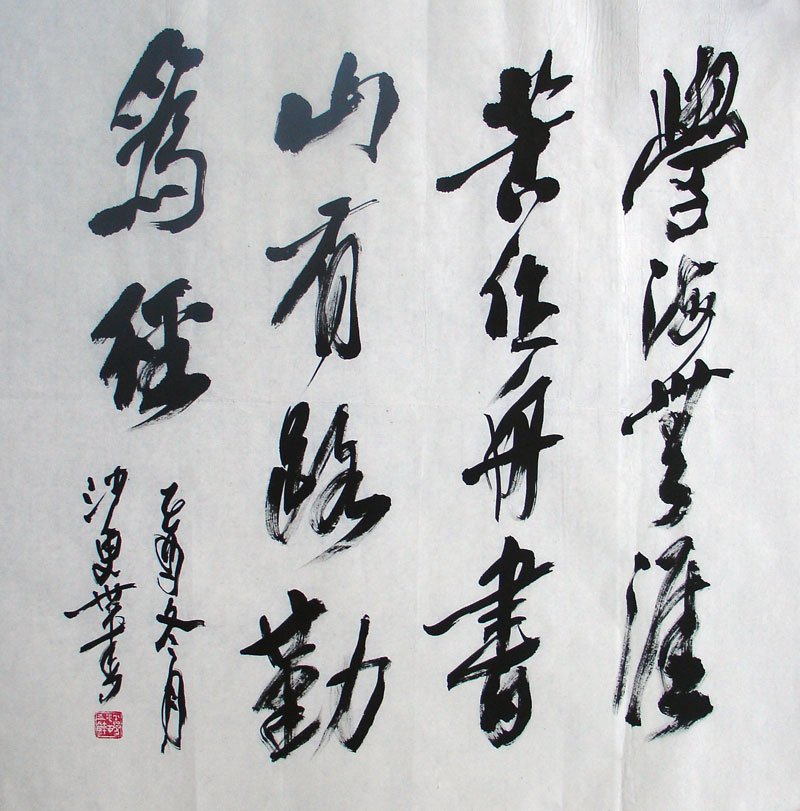 學海無涯
苦作舟書
山有路勤
為徑
乙酉冬月
沙更世书